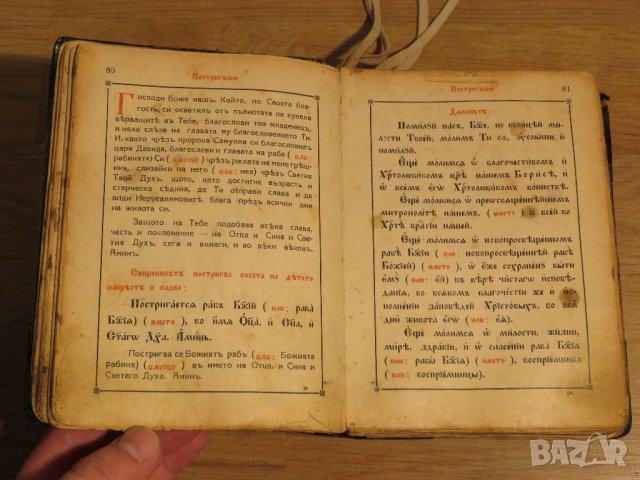 80
Постригание
Господи Боже нашъ, Който, по Своята бла-
гость, си осветилъ отъ пълнотата на купела
вѣрващитѣ въ Тебе, благослови тоя младенецъ,
и нека слѣзе на главата му благословението Ти.
И, както чрѣзъ пророка Самуила си благословилъ
царя Давида, благослови и главата на раба (или:
рабинята) Си (името) чрѣзъ рѫката на мене грѣш-
ния, слизайки на него (или: нея) чрѣзъ Светия
Твой Духъ, щото, като достигне възрасть и
старческа сѣдина, да Ти отправи слава и да
види Иерусалимовитѣ блага прѣзъ всички дни
на живота си.
Защото на Тебе подобава всѣка слава,
честь и поклонение – на Отца и Сина и Све-
тия Духъ, сега и винаги, и во вѣки вѣковъ.
Аминь.
Свещеникътъ постригва косата на дѣтето
накръстъ и казва:
Постригается рабъ Бж҃ій (или: раба
Бж҃ія) (името), во имѧ Оц҃а, и Сн҃а, и
Ст҃агѡ Дх҃а. Аминь.
Постригва се Божиятъ рабъ (или: Божията
рабиня) (името) въ името на Отца, и Сина и
Светаго Духа. Аминь.
Постригание
81
Дяконътъ:
Помилуй насъ, Бж҃е, по велицѣй ми-
лости Твоей, молимъ Ти сѧ, оуслыши и
помилуй.
Еще молимсѧ ѡ благочестивомъ и
Хрⷭ҇толюбивомъ цр҃ѣ нашемъ Борисѣ, и
ѡ всемъ егѡ Хрⷭ҇толюбивомъ воинствѣ.
Еще молимсѧ ѡ преосвѧщеннѣйшемъ
митрополитѣ нашемъ (името) и всей во
Хрⷭ҇тѣ братіи нашей.
Еще молимсѧ ѡ новопросвѣщенномъ
рабѣ Бж҃іи (или: новопросвѣщенней рабѣ
Бж҃іей) (името), ѡ еже сохранену быти
ему (или: ей) въ вѣрѣ чистагѡ исповѣ-
данія, во всѧкомъ благочестіи же и ис-
полненіи заповѣдей Христовыхъ, во всѧ дни
живота егѡ (или: еѧ).
Еще молимсѧ ѡ милости, жизни,
мирѣ, здравіи, и ѡ спасеніи раба Бж҃іѧ
(или: рабы Бж҃іѧ) (името), воспріемника
(или: воспріемницы).
BAZAR
bg